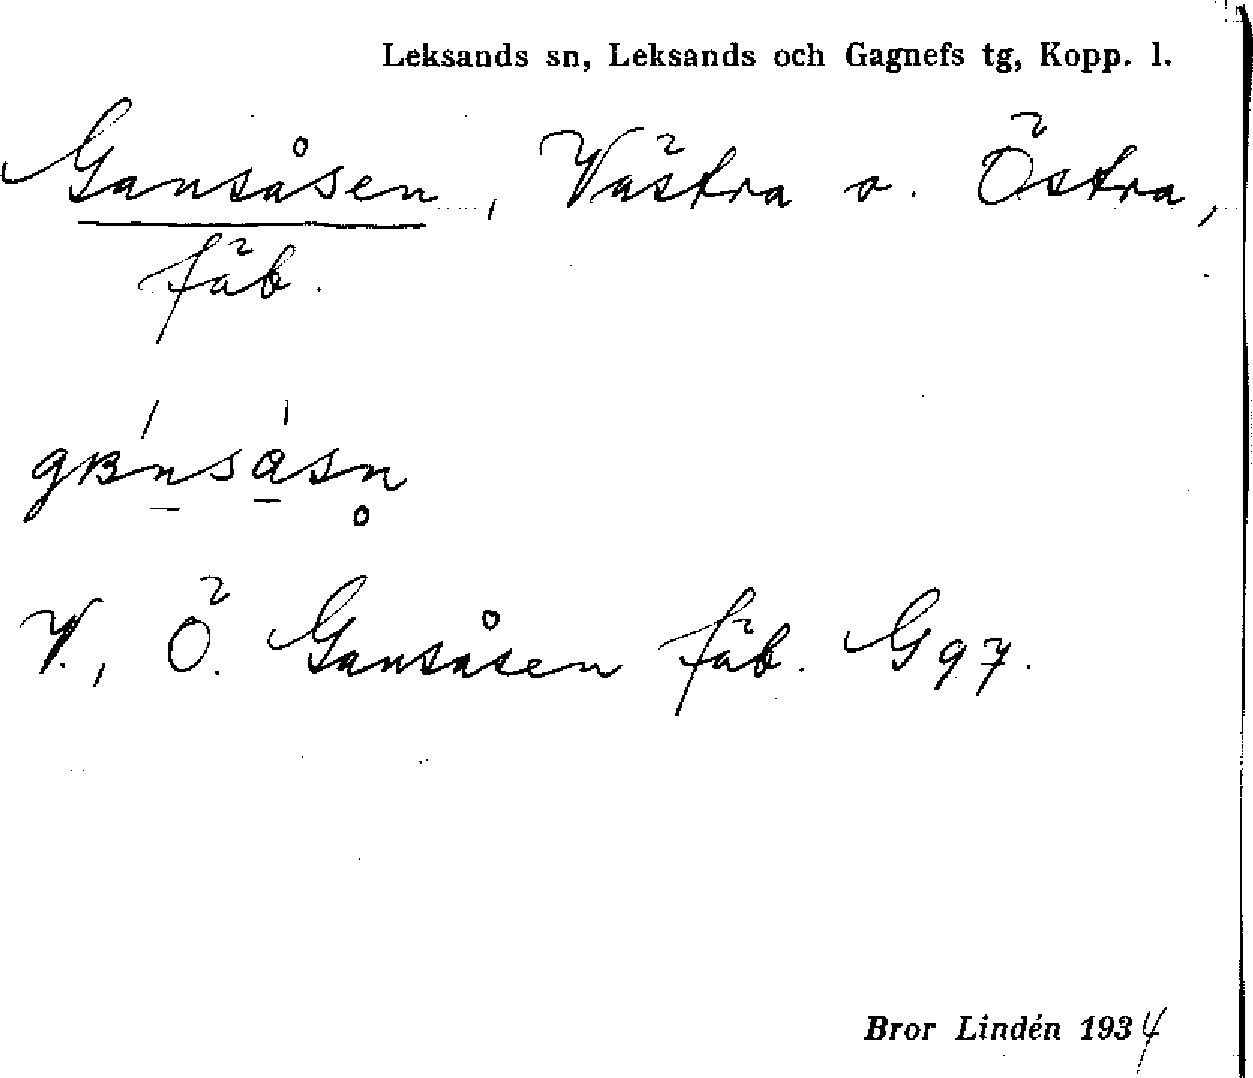 Leksands sn, Leksands och Gagnefs tg, Kopp. l.
Gansåsen, Västra o. Östra,
fäb.
V., Ö. Gansåsen fäb. G 97.
Bror Lindén 1934